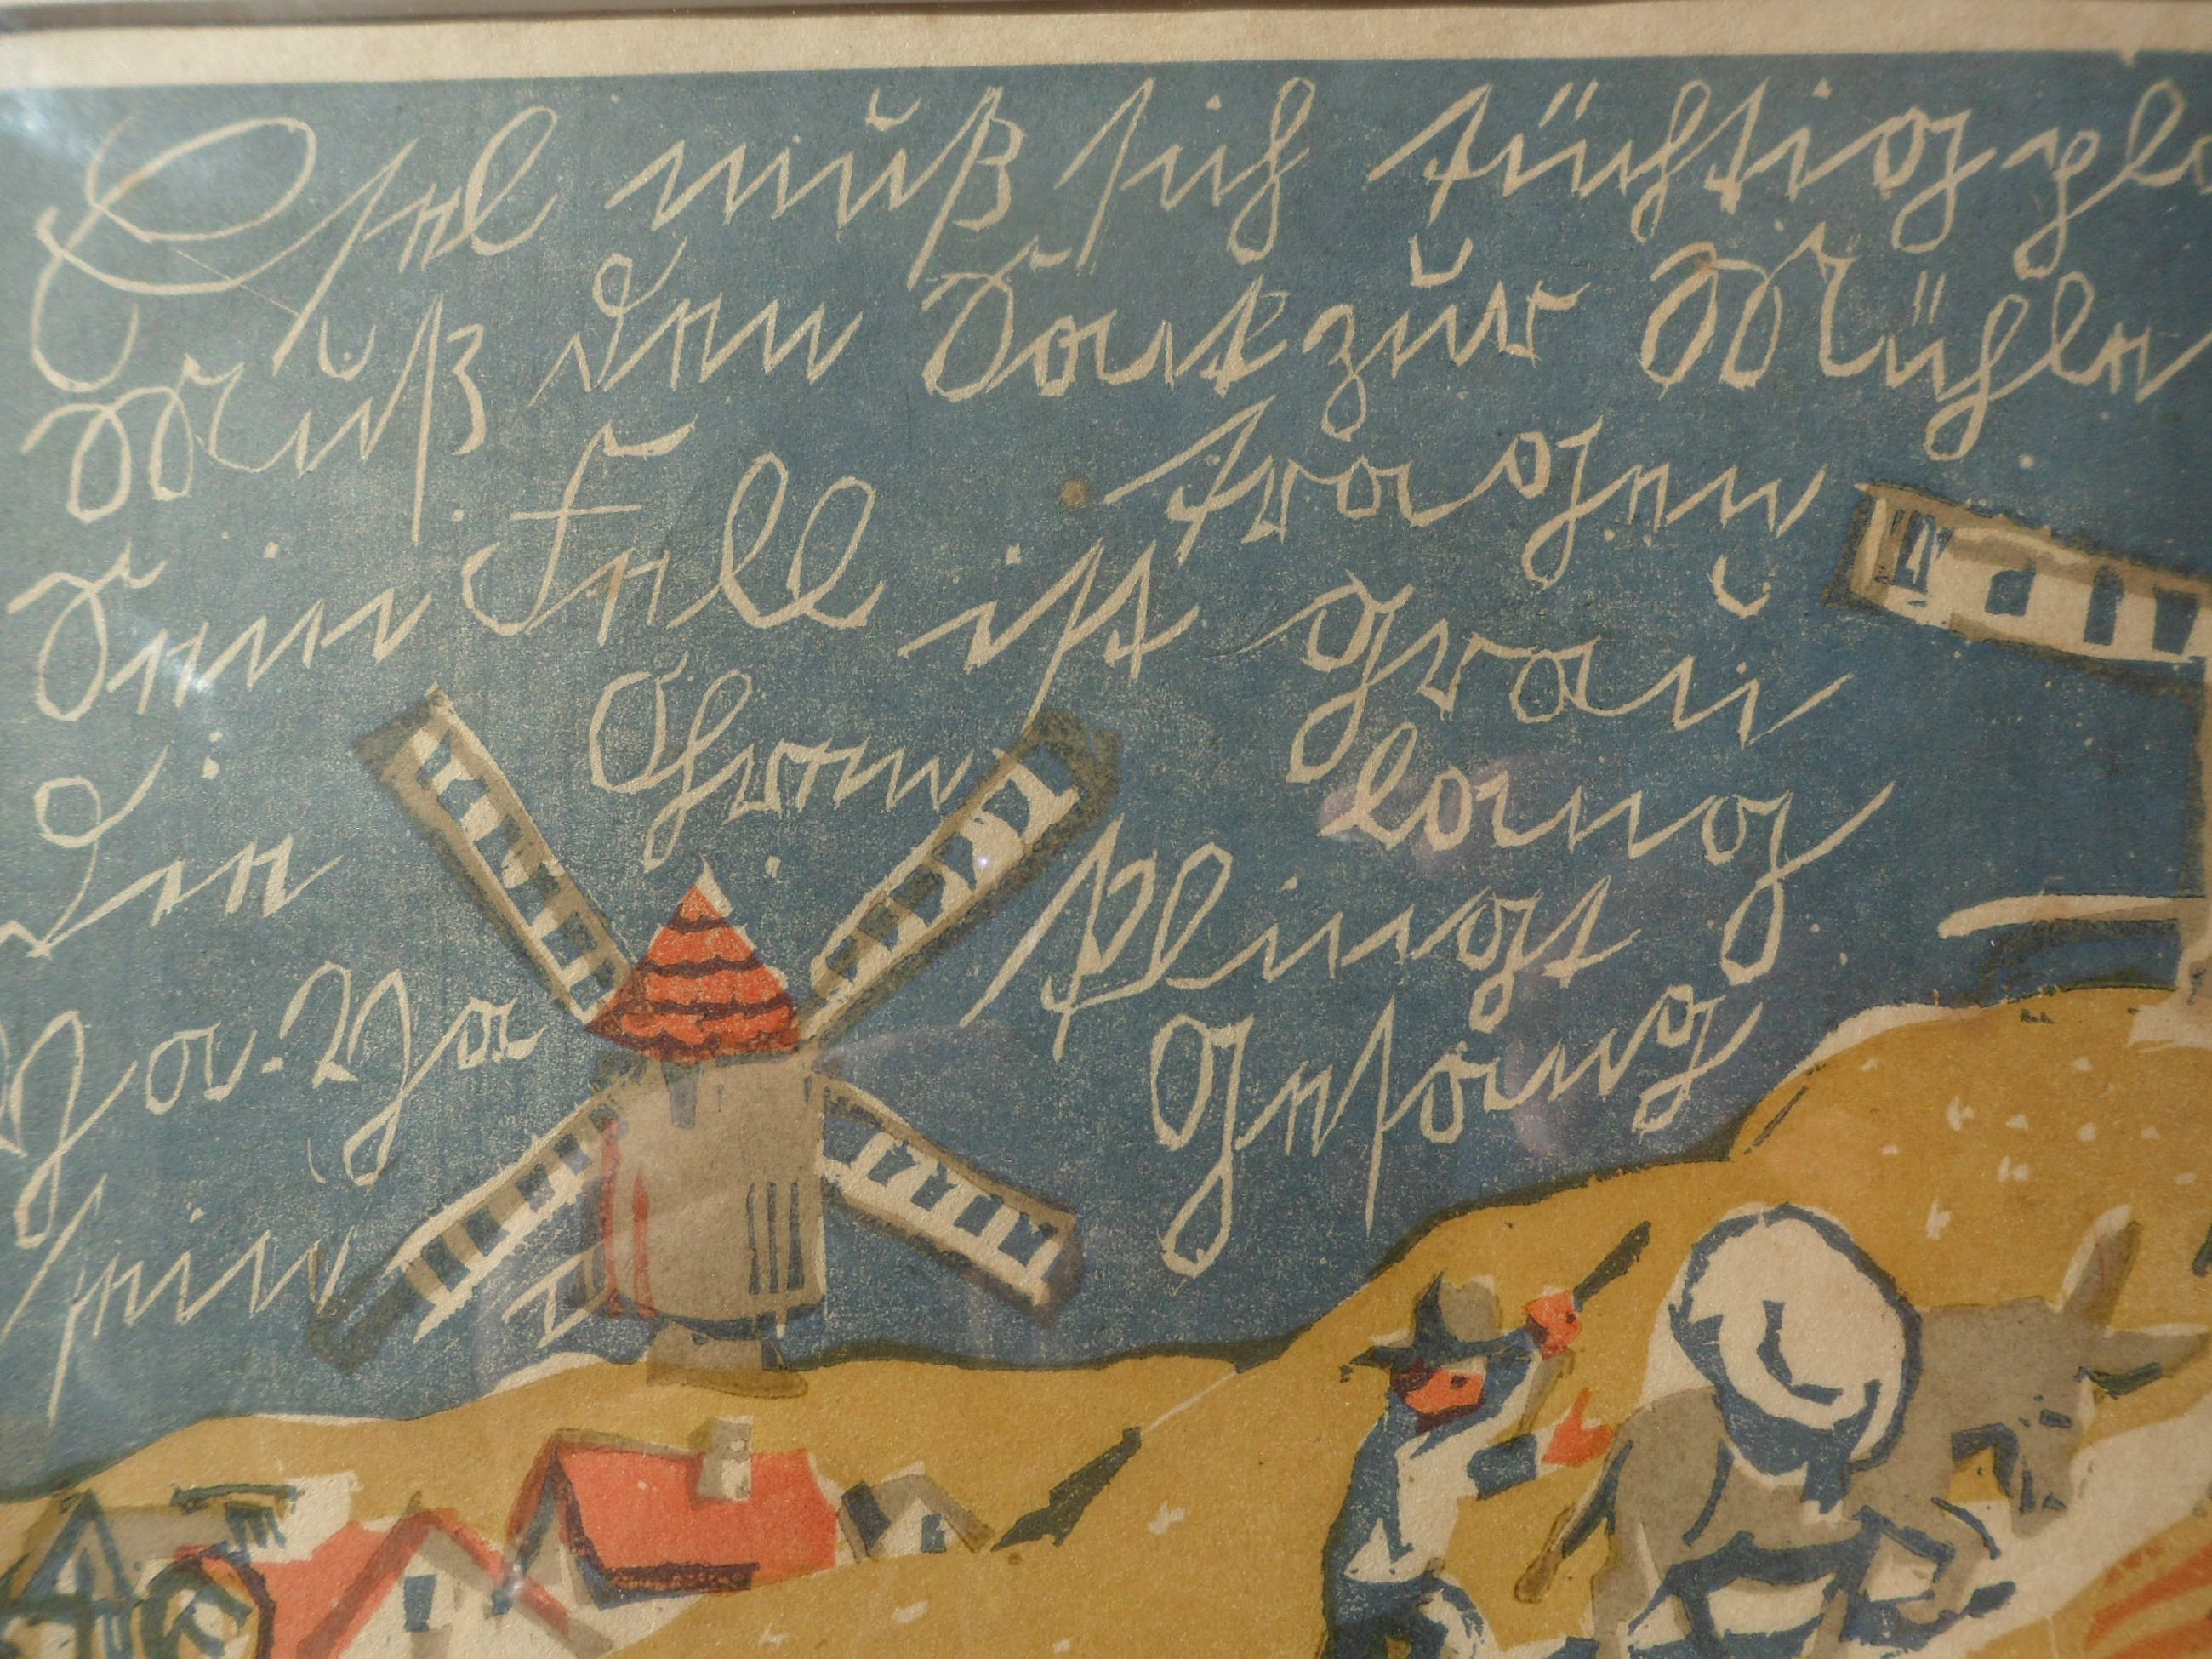 Esel muß sich tüchtig pla
Muß den Sack zur Mühle
tragen
Sein Fell ist grau
Die Ohren lang
Ya-Ya klingt
sein Gesang